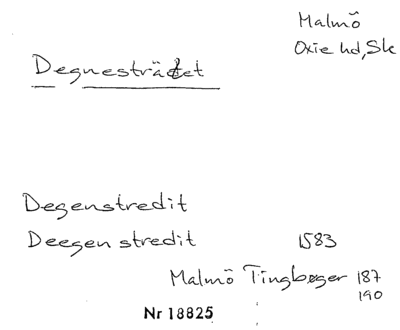 Malmö
Oxie hd, Sk
Degnesträtet
Degenstredit
Deegen stredit 1583
Malmö Tingbøger 187
190
Nr 18825